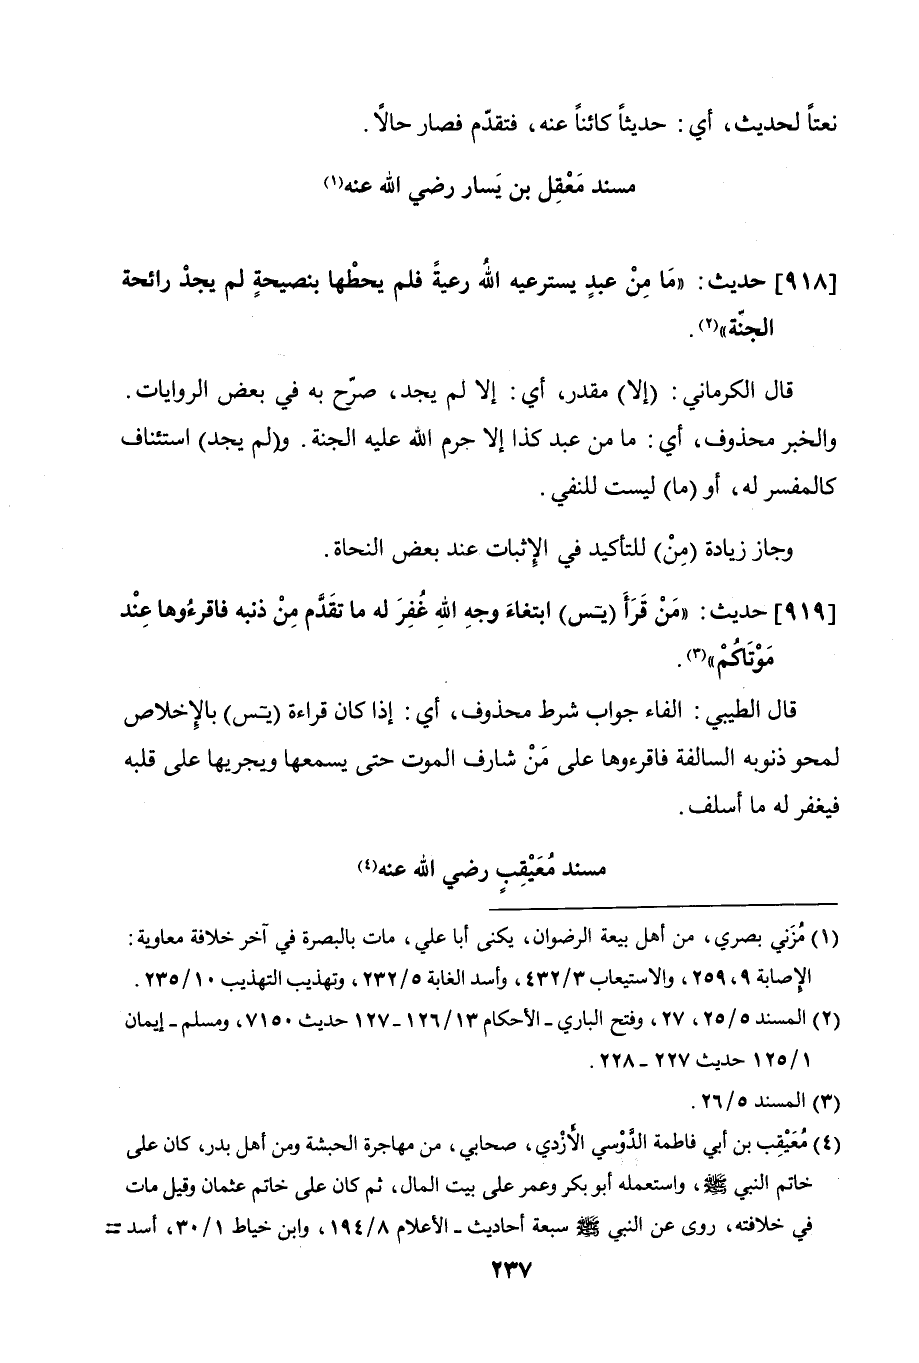 نعتاً لحديث، أي: حديثاً كائناً عنه، فتقدّم فصار حالاً.
مسند مَعْقِل بن يَسار رضي الله عنه(١)
[٩١٨] حديث: «مَا مِنْ عبدٍ يسترعيه اللهُ رعيةً فلم يحطْها بنصيحةٍ لم يجدْ رائحة
الجنّة»(٢).
قال الكرماني: (إلا) مقدر، أي: إلا لم يجد، صرّح به في بعض الروايات.
والخبر محذوف، أي: ما من عبد كذا إلا حرم الله عليه الجنة. و(لم يجد) استئناف
كالمفسر له، أو (ما) ليست للنفي.
وجاز زيادة (مِنْ) للتأكيد في الإثبات عند بعض النحاة.
[٩١٩] حديث: «مَنْ قَرَأَ (يـٓس) ابتغاءَ وجهِ اللهِ غُفِرَ له ما تقَدَّم مِنْ ذنبه فاقرءُوها عِنْد
مَوْتَاكُمْ»(٣).
قال الطيبي: الفاء جواب شرط محذوف، أي: إذا كان قراءة (يـٓس) بالإخلاص
لمحو ذنوبه السالفة فاقرءوها على مَنْ شارف الموت حتى يسمعها ويجريها على قلبه
فيغفر له ما أسلف.
مسند مُعَيْقِبٍ رضي الله عنه(٤)
(١) مُزَني بصري، من أهل بيعة الرضوان، يكنى أبا علي، مات بالبصرة في آخر خلافة معاوية:
الإصابة ٩، ٢٥٩، والاستيعاب ٤٣٢/٣، وأسد الغابة ٢٣٢/٥، وتهذيب التهذيب ٢٣٥/١٠.
(٢) المسند ٢٥/٥، ٢٧، وفتح الباري ـ الأحكام ١٢٦/١٣ ـ ١٢٧ حديث ٧١٥٠، ومسلم ـ إيمان
١٢٥/١ حديث ٢٢٧ ـ ٢٢٨.
(٣) المسند ٢٦/٥.
(٤) مُعَيْقِب بن أبي فاطمة الدَّوْسي الأَزْدي، صحابي، من مهاجرة الحبشة ومن أهل بدر، كان على
خاتم النبي ﷺ، واستعمله أبو بكر وعمر على بيت المال، ثم كان على خاتم عثمان وقيل مات
في خلافته، روى عن النبي ﷺ سبعة أحاديث ـ الأعلام ١٩٤/٨، وابن خياط ٣٠/١، أسد =
٢٣٧